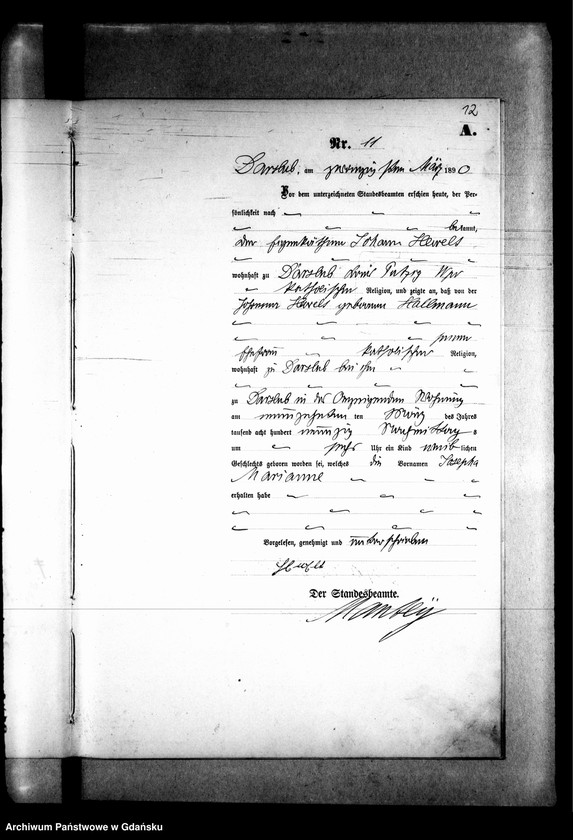 12
A.
Nr. 11
Darslub, am zwanzigsten März 1890
Vor dem unterzeichneten Standesbeamten erschien heute, der Per-
sönlichkeit nach
bekannt,
der Eigenkäthner Johann Hewels
wohnhaft zu Darslub Kreis Putzig Wpr
katholischer Religion, und zeigte an, daß von der
Johanna Hewels geborenen Hallmann
seiner
Ehefrau katholischer Religion,
wohnhaft zu Darslub bei ihm
zu Darslub in des Anzeigenden Wohnung
am neunzehnten ten März des Jahres
tausend acht hundert neunzig Nachmittag s
um sechs Uhr ein Kind weiblichen
Geschlechts geboren worden sei, welches die Vornamen Josepha
Marianne
erhalten habe
Vorgelesen, genehmigt und unterschrieben
Der Standesbeamte.
Archiwum Państwowe w Gdańsku